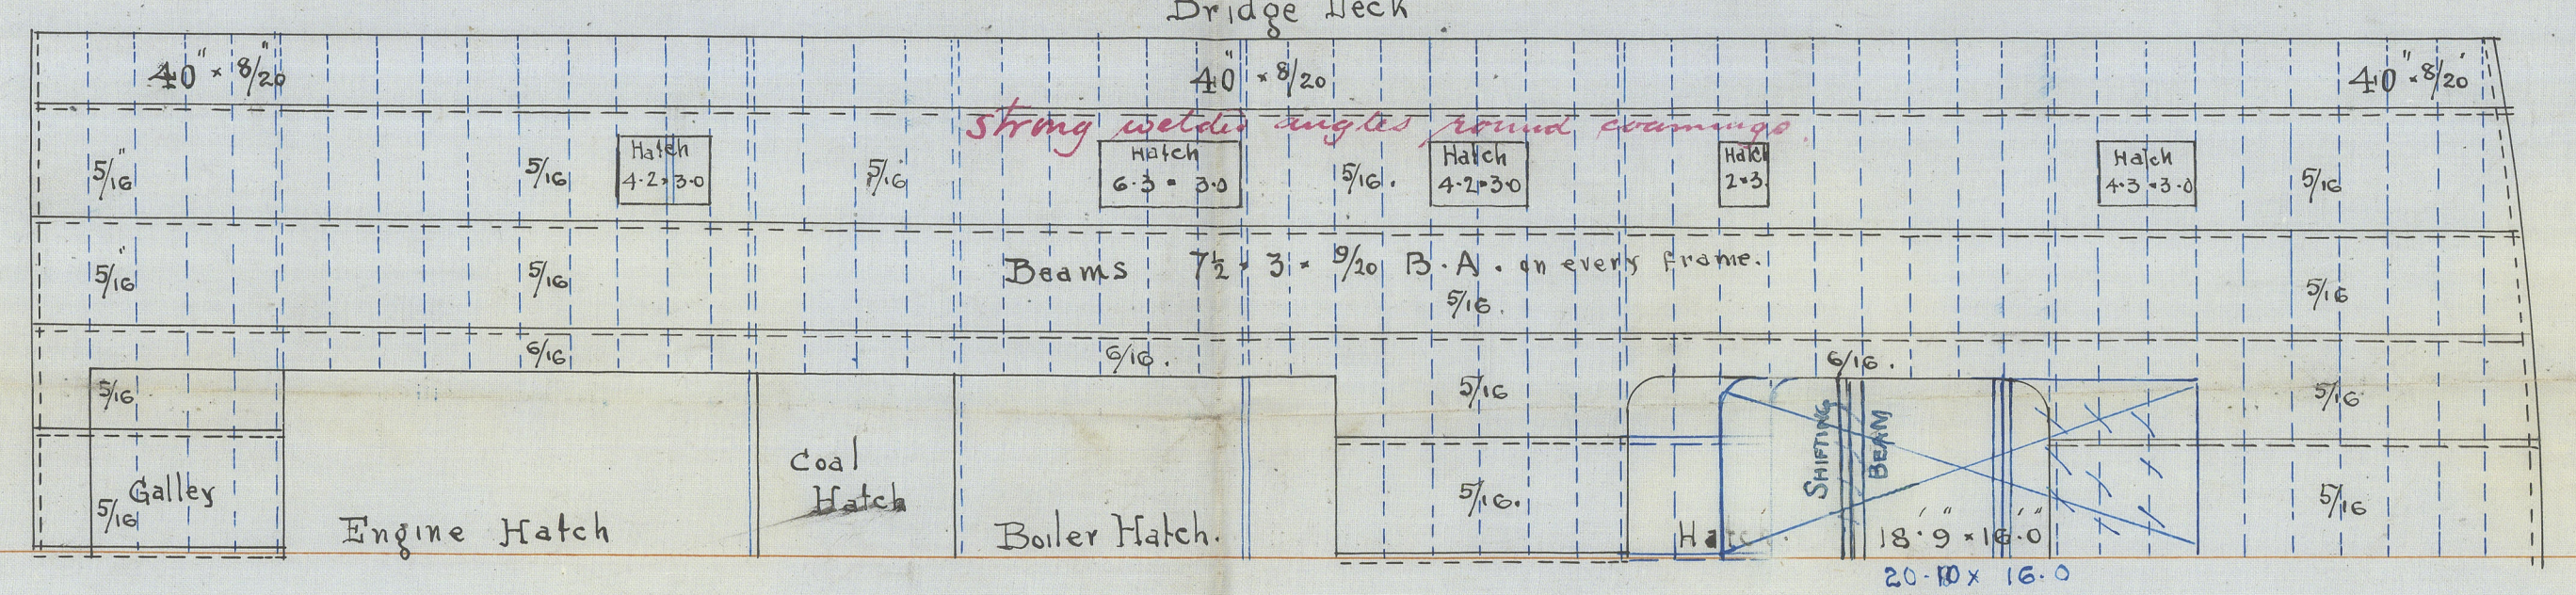 Bridge Deck
40" × 8/20
40" × 8/20
40" × 8/20
strong welded angles round coamings.
5/16"
5/16
Hatch
4·2 × 3·0
5/16
Hatch
6·3 × 3·0
5/16.
Hatch
4·2 × 3·0
Hatch
2 × 3
Hatch
4·3 × 3·0
5/16
5/16"
5/16
Beams 7½ × 3 × 9/20 B.A. on every frame.
5/16.
5/16
6/16
6/16.
6/16.
5/16
5/16
5/16
Galley
5/16
Engine Hatch
Coal
Hatch
Boiler Hatch.
5/16.
SHIFTING
BEAM
18'·9" × 16'·0"
5/16
20·10 × 16·0